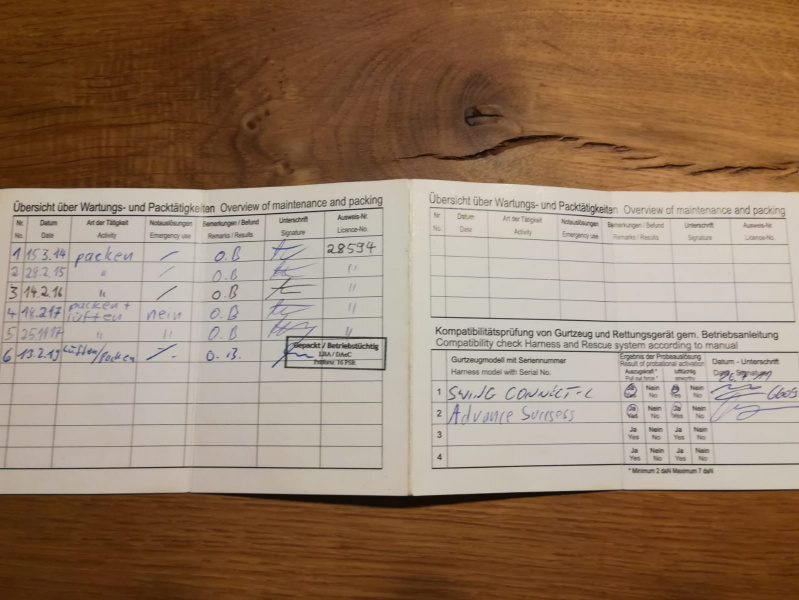 Übersicht über Wartungs- und Packtätigkeiten Overview of maintenance and packing
Nr. Datum Art der Tätigkeit Notauslösungen Bemerkungen / Befund Unterschrift Ausweis-Nr.
No. Date Activity Emergency use Remarks / Results Signature Licence-No.
1 15.3.14 packen / O.B 28594
2 28.2.15 " / O.B "
3 14.2.16 " / O.B "
4 18.2.17 packen + lüften nein O.B "
5 " " O.B "
6 lüften/packen O.B.
Gepackt / Betriebstüchtig
LBA / DAeC
Übersicht über Wartungs- und Packtätigkeiten Overview of maintenance and packing
Nr. Datum Art der Tätigkeit Notauslösungen Bemerkungen / Befund Unterschrift Ausweis-Nr.
No. Date Activity Emergency use Remarks / Results Signature Licence-No.
Kompatibilitätsprüfung von Gurtzeug und Rettungsgerät gem. Betriebsanleitung
Compatibility check Harness and Rescue system according to manual
Gurtzeugmodell mit Seriennummer Ergebnis der Probeauslösung Datum - Unterschrift
Harness model with Serial No. Result of probational activation
1 SWING CONNECT-L Ja Yes Nein No Ja Yes Nein No
2 Advance Success Ja Yes Nein No Ja Yes Nein No
3 Ja Yes Nein No Ja Yes Nein No
4 Ja Yes Nein No Ja Yes Nein No
* Minimum 2 daN Maximum 7 daN